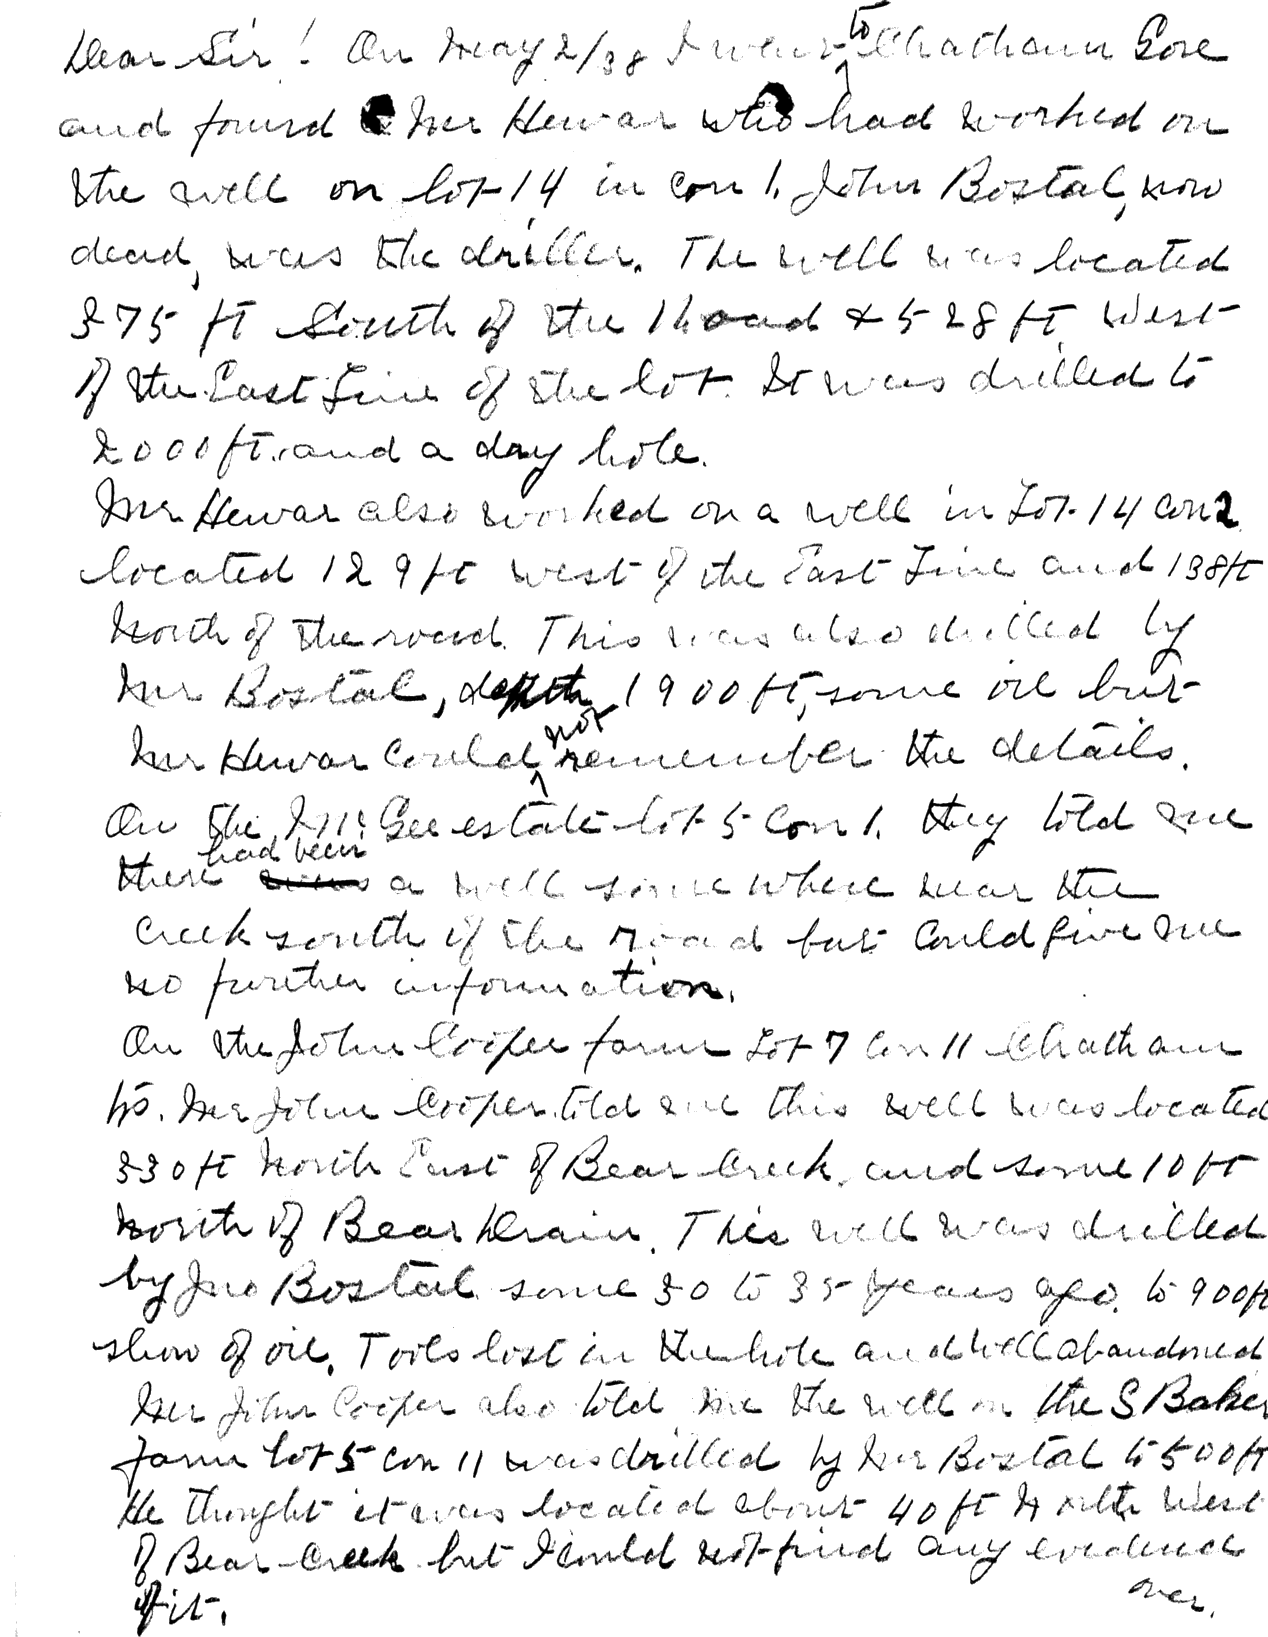 Dear Sir! On May 2/38 I went to Chatham Gore
and found Mr Hewar who had worked on
the well on lot 14 in con 1. John Bostal, now
dead, was the driller. The well was located
375 ft South of the Road & 528 ft West
of the East Line of the lot. It was drilled to
2000 ft. and a dry hole.
Mr Hewar also worked on a well in Lot 14 con 2
located 129 ft west of the East Line and 138 ft
North of the road. This was also drilled by
Mr Bostal, depth 1900 ft, some oil but
Mr Hewar could not remember the details.
On the Gee estate lot 5 Con 1. they told me
there had been a well some where near the
Creek south of the road but could give me
no further information.
On the John Cooper farm Lot 7 Con 11 Chatham
Mr John Cooper told me this well was located
330 ft North East of Bear Creek. and some 10 ft
North of Bear Drain. This well was drilled
by Jno Bostal some 30 to 35 years ago. to 900 ft
show of oil. Tools lost in the hole and well abandoned
Mr John Cooper also told me the well on the S Baker
farm lot 5 con 11 was drilled by Mr Bostal to 500 ft
He thought it was located about 40 ft North West
of Bear Creek but I could not find any evidence
of it.
over.